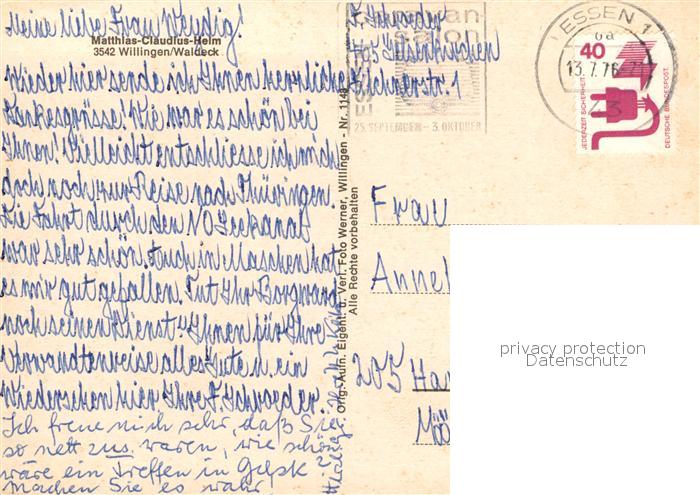 Meine liebe Frau Wendig!
Matthias-Claudius-Heim
3542 Willingen/Waldeck
Wieder hier sende ich Ihnen herrliche
Dankesgrüsse! Wie war es schön bei
Ihnen! Vielleicht entschliesse ich mich
doch noch zur Reise nach Thüringen.
Die Fahrt durch den NO Seekanal
war sehr schön. Auch in Maschen hat
es mir gut gefallen. Tut Ihr Borgward
noch seinen Dienst? Ihnen für Ihre
Verwandtenreise alles Gute u. ein
Wiedersehen hier Ihre F. Schroeder.
Ich freue mich sehr, daß Sie
so nett zus. waren, wie schön
wäre ein Treffen in Gelsk?
Machen Sie es wahr
Orig.-Aufn. Eigent. u. Verl. Foto Werner, Willingen - Nr. 1148
Alle Rechte vorbehalten
F. Schroeder
465 Gelsenkirchen
str. 1
ESSEN
25. SEPTEMBER - 3. OKTOBER
ESSEN 1
13.7.76
43
40
JEDERZEIT SICHERHEIT
DEUTSCHE BUNDESPOST
Frau
Anne
205 Ha
privacy protection
Datenschutz